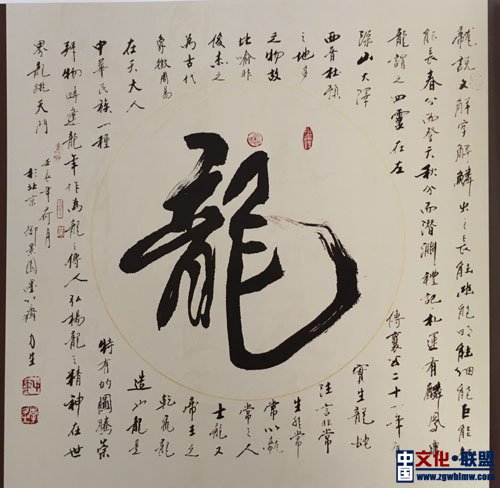 龍說文解字解鱗虫之長能幽能明能細能巨能短
能長春分而登天秋分而潛淵禮記礼運有麟鳳龜
龍謂之四靈在左
傳襄公二十一年有
深山大澤
實生龍蛇
西晉杜預
注言非常
之地多
生非常
之物故
常以龍
比喻非
常之人
俊杰之
士龍又
為古代
帝王之
象徵周易
乾飛龍
在天大人
造以龍是
中華民族一種
特有的圖騰崇
拜物時逢龍年作為龍之傳人弘揚龍之精神在世
界龍跳天門
壬辰年荷月
於北京御景園
龍
中国文化·联盟
www.zgwhlmw.com